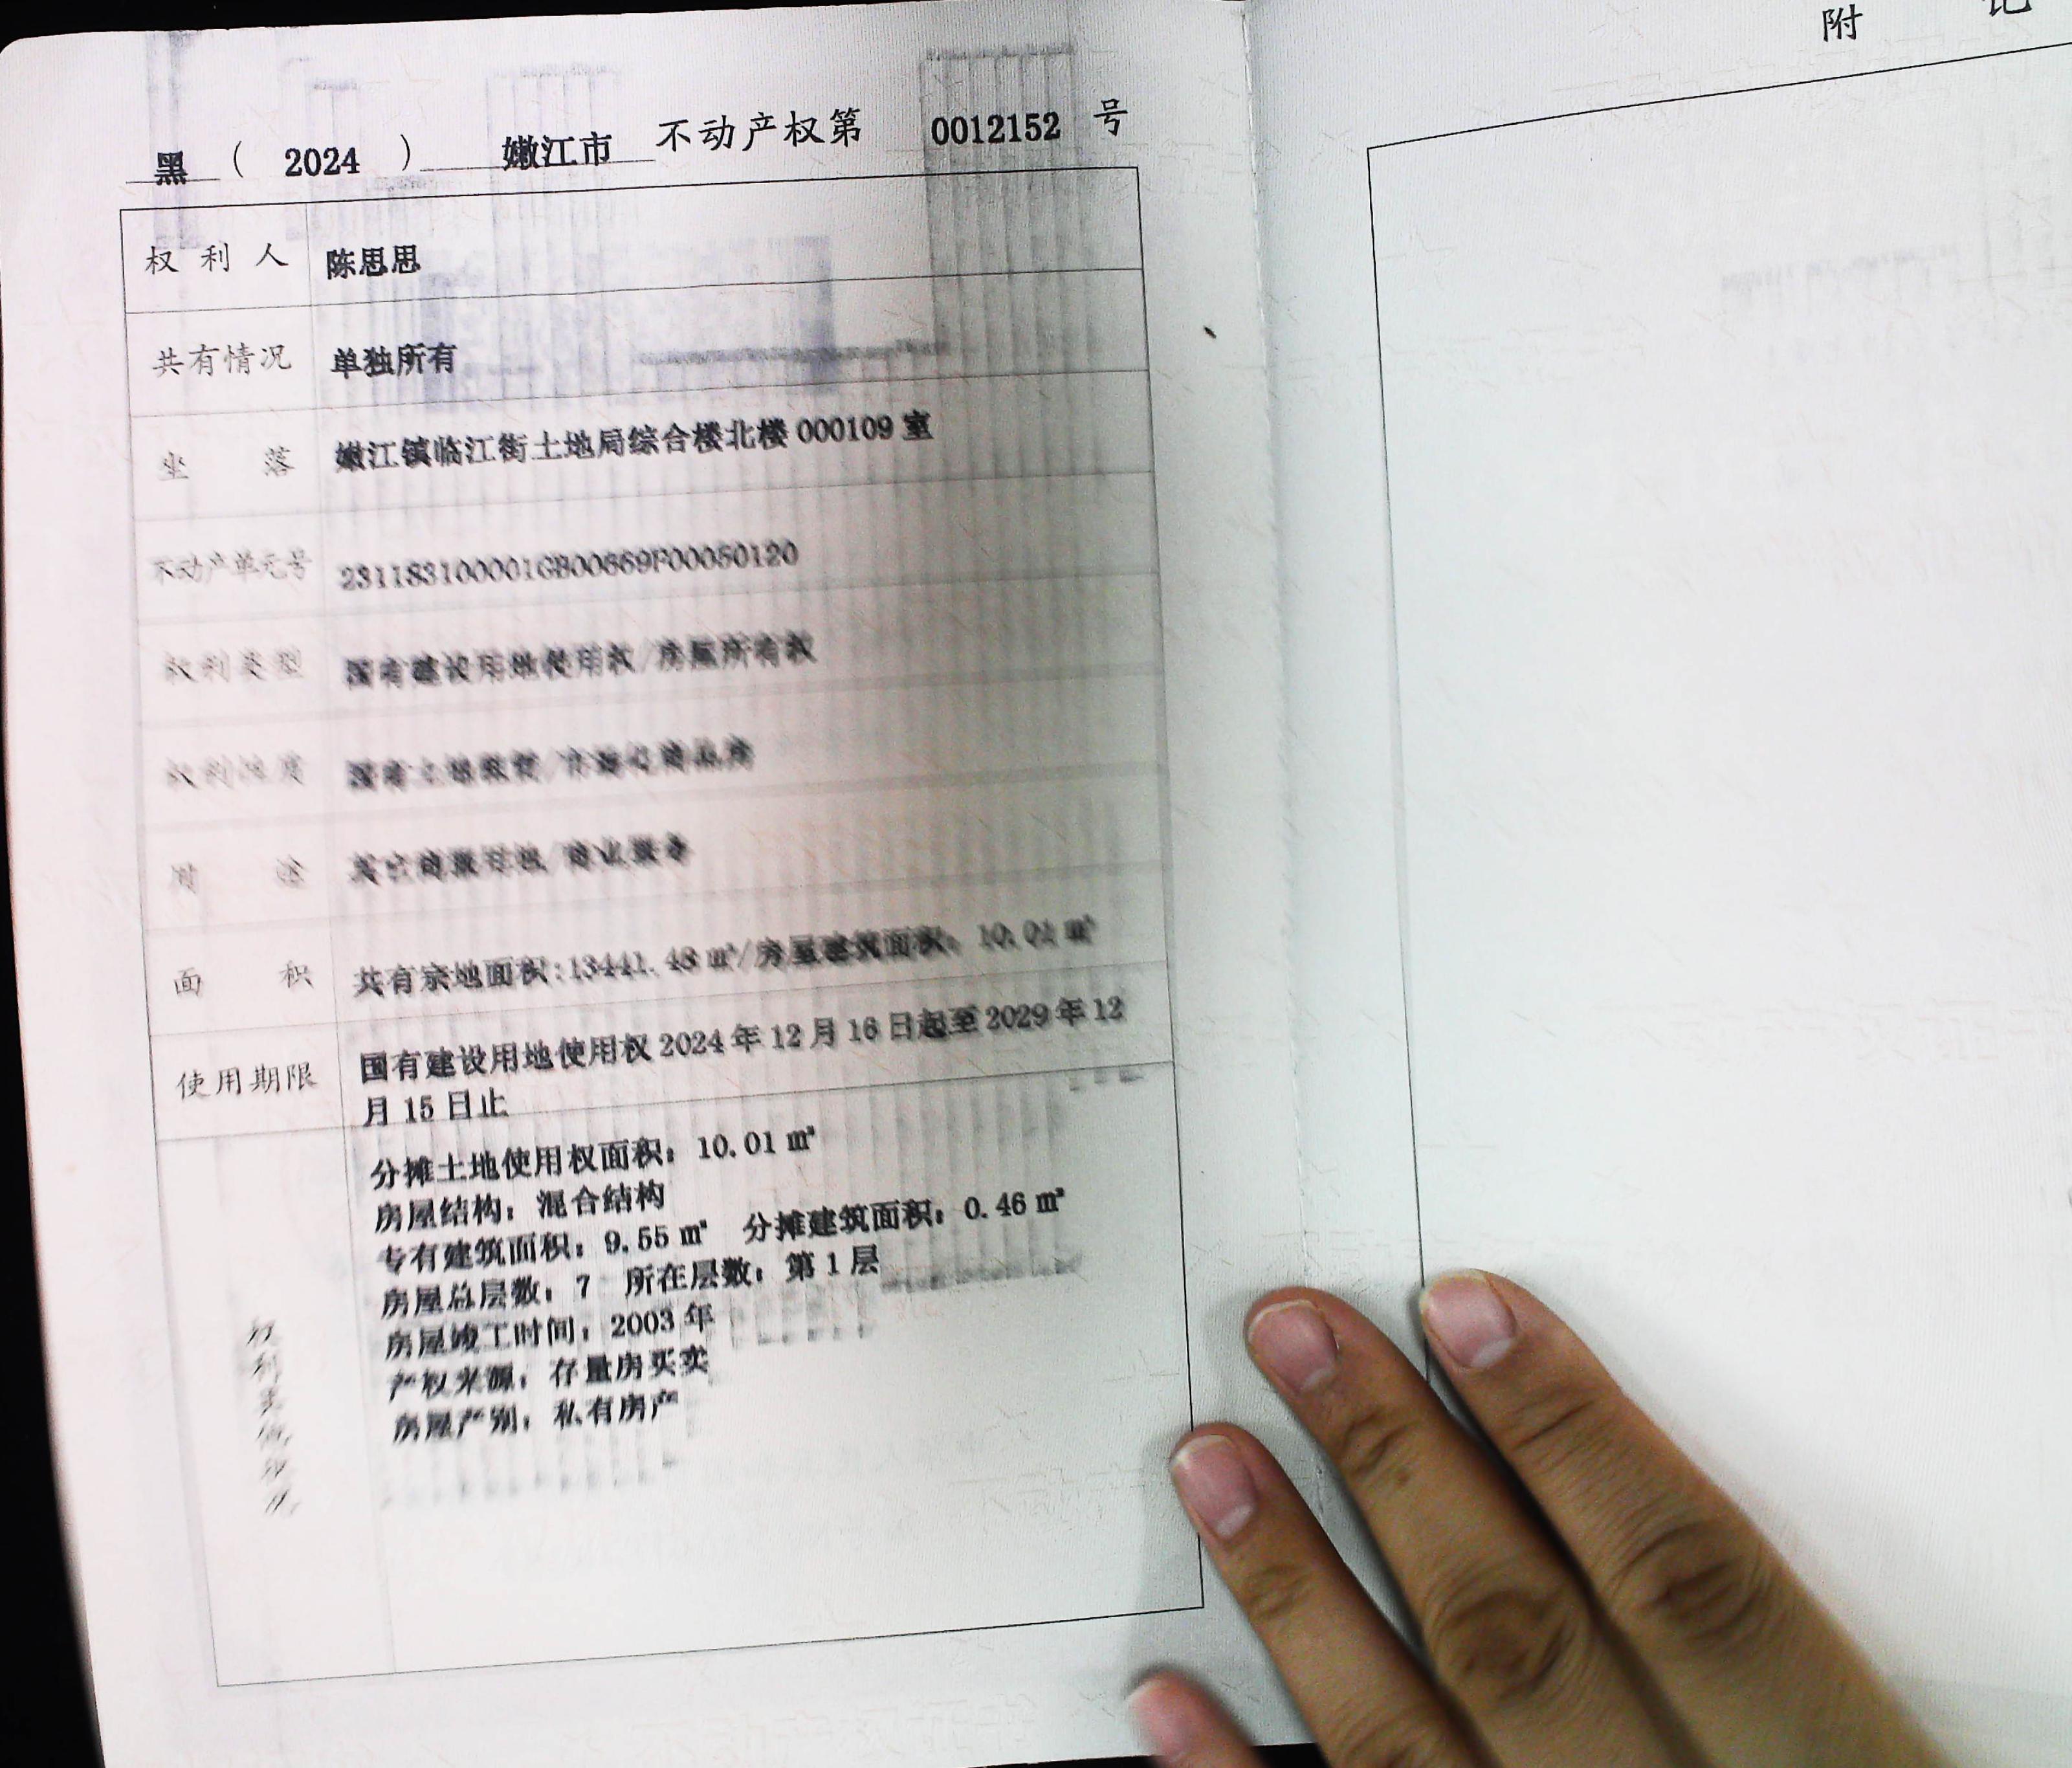 附 记
黑 ( 2024 ) 嫩江市 不动产权第 0012152 号
权利人 陈思思
共有情况 单独所有
坐落 嫩江镇临江街土地局综合楼北楼 000109 室
不动产单元号 231183100001GB00669F00050120
权利类型 国有建设用地使用权/房屋所有权
权利性质
用途 其它商服用地/商业服务
面积 共有宗地面积:13441.48 ㎡/房屋建筑面积:10.01 ㎡
使用期限 国有建设用地使用权 2024 年 12 月 16 日起至 2029 年 12
月 15 日止
分摊土地使用权面积:10.01 ㎡
房屋结构:混合结构
专有建筑面积:9.55 ㎡ 分摊建筑面积:0.46 ㎡
房屋总层数:7 所在层数:第 1 层
房屋竣工时间:2003 年
产权来源:存量房买卖
房屋产别:私有房产
权利其他状况